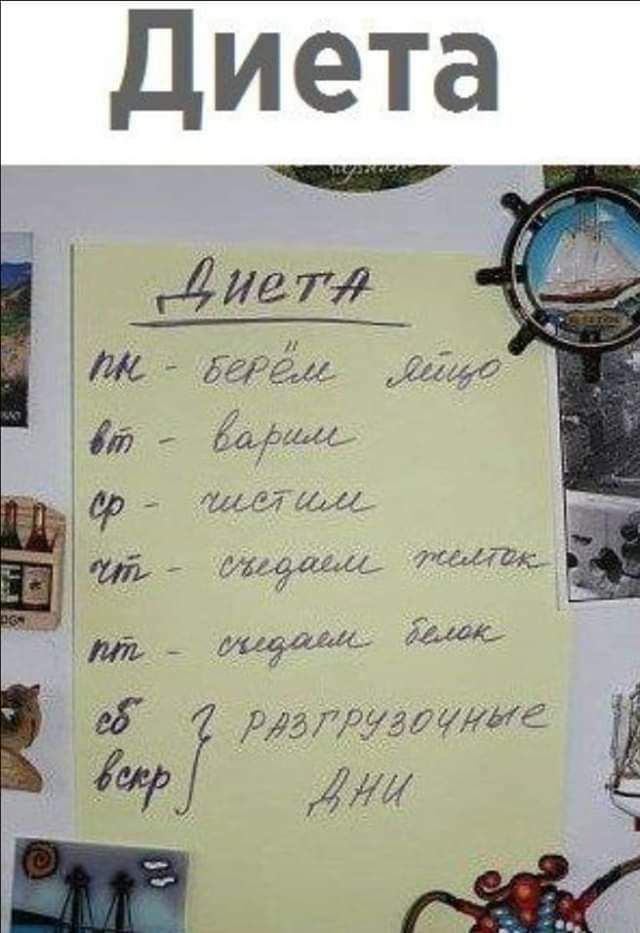 Диета
Диета
пн - берём яйцо
вт - варим
ср - чистим
чт - съедаем желток
пт - съедаем белок
сб } РАЗГРУЗОЧНЫЕ
вскр } ДНИ